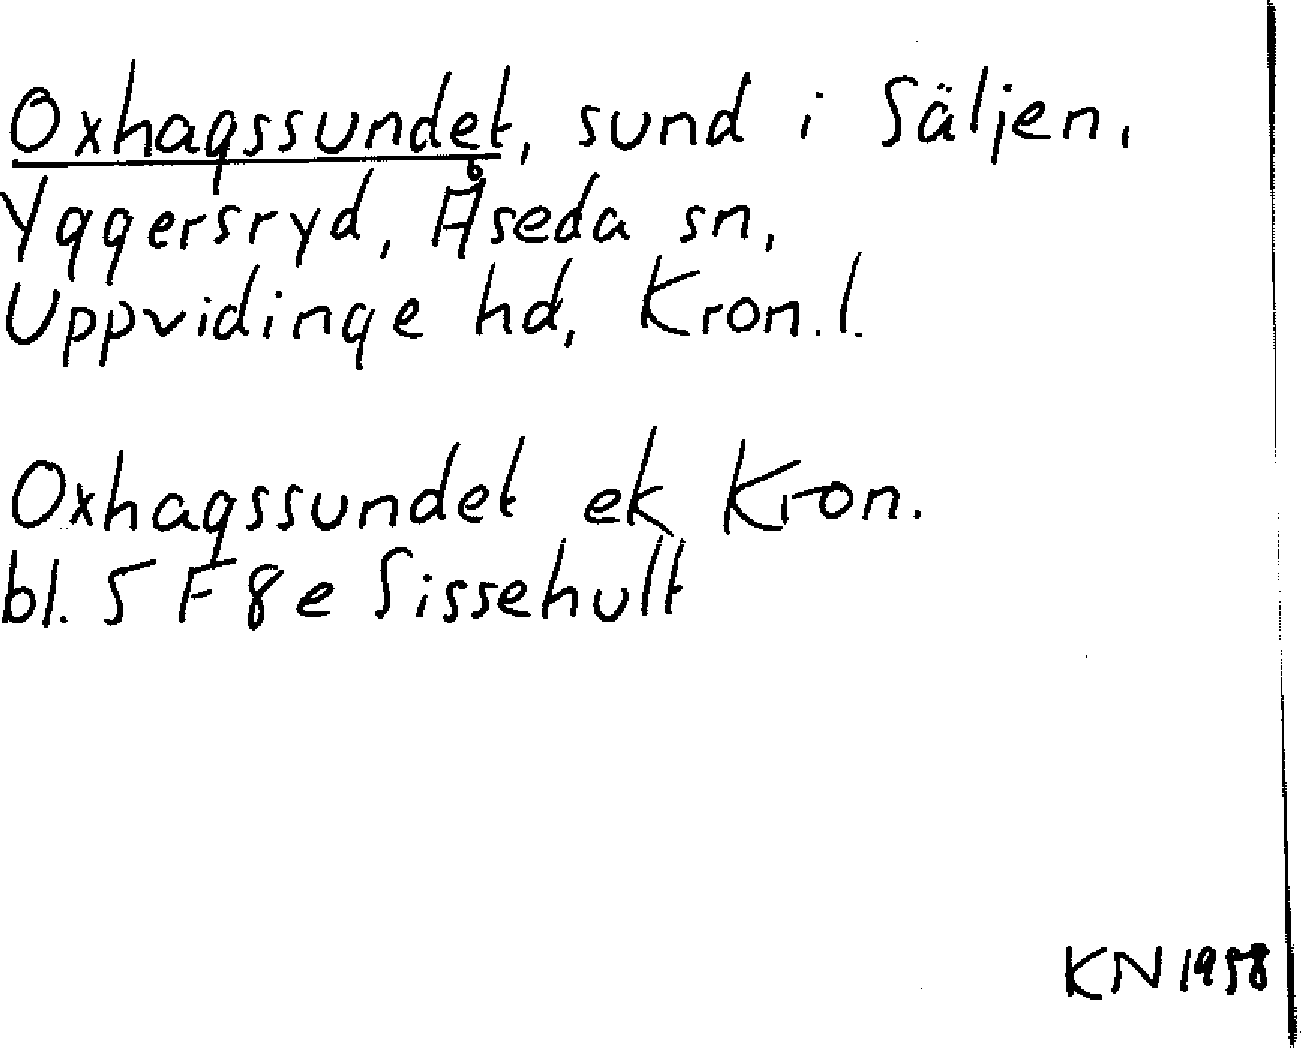 Oxhagssundet, sund i Säljen,
Yggersryd, Åseda sn,
Uppvidinge hd, Kron.l.
Oxhagssundet ek Kron.
bl. 5 F 8 e Sissehult
KN 1958